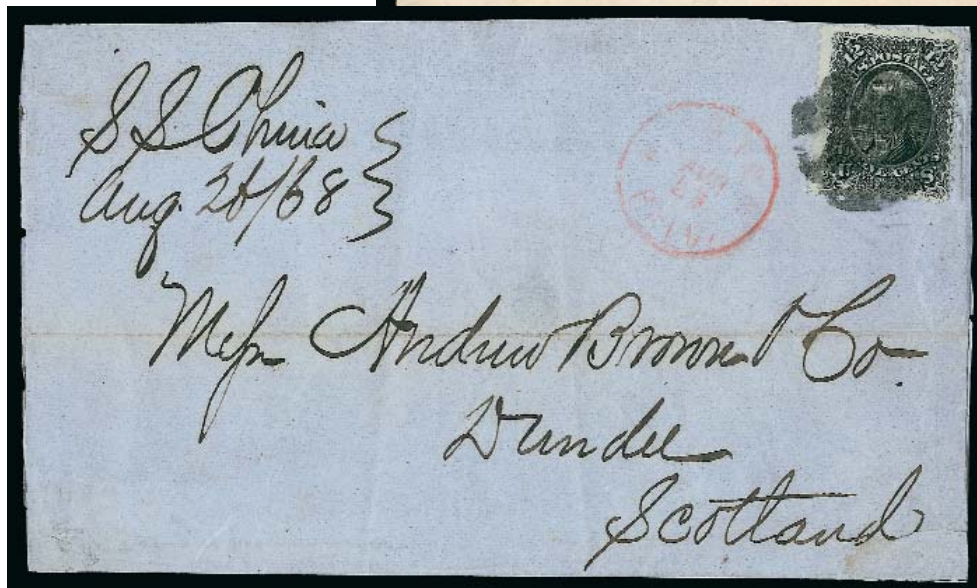 S S China
Aug. 26/68
12 12
U.S. POSTAGE
Mess Andrew Brown & Co.
Dundee
Scotland